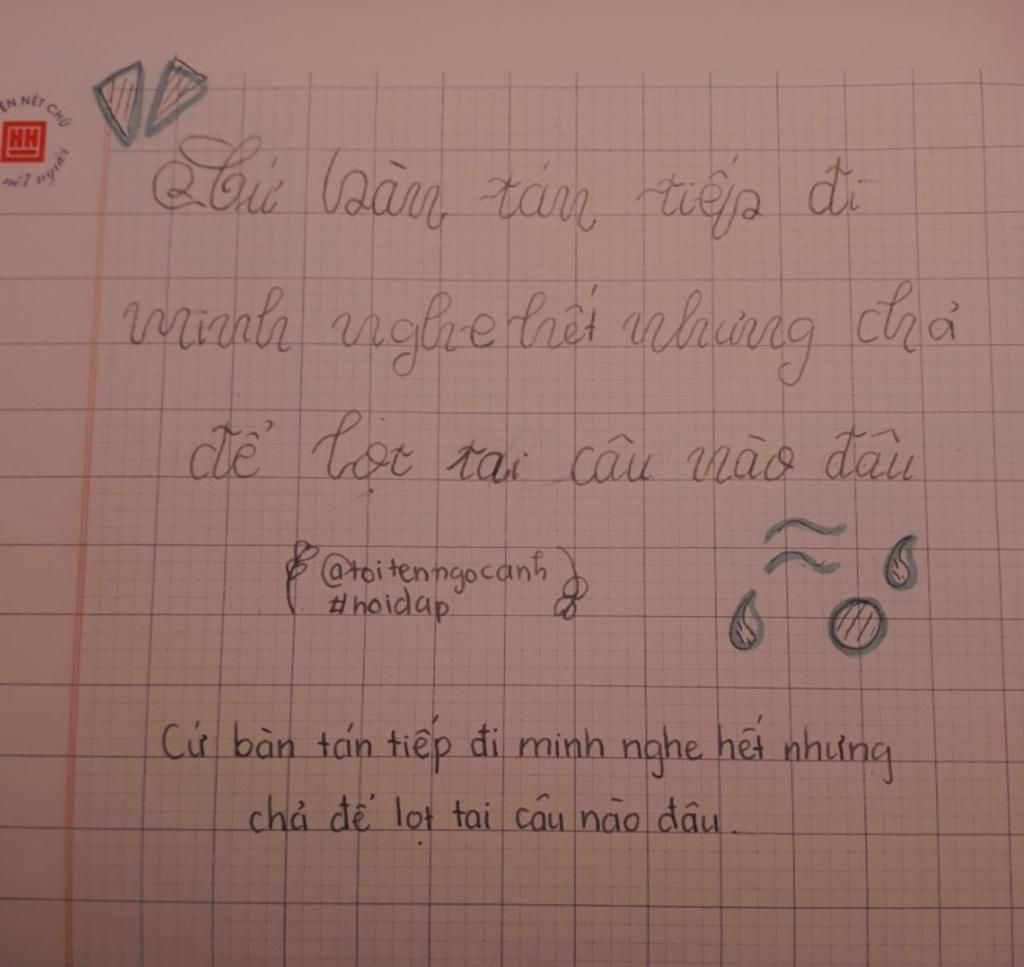 ÈN NÉT CHỮ
HH
nết người
Cứ bàn tán tiếp đi
mình nghe hết nhưng chả
để lọt tai câu nào đâu
@toitenngocanh
#hoidap
Cứ bàn tán tiếp đi minh nghe hết nhưng
chả để lọt tai câu nào đâu.